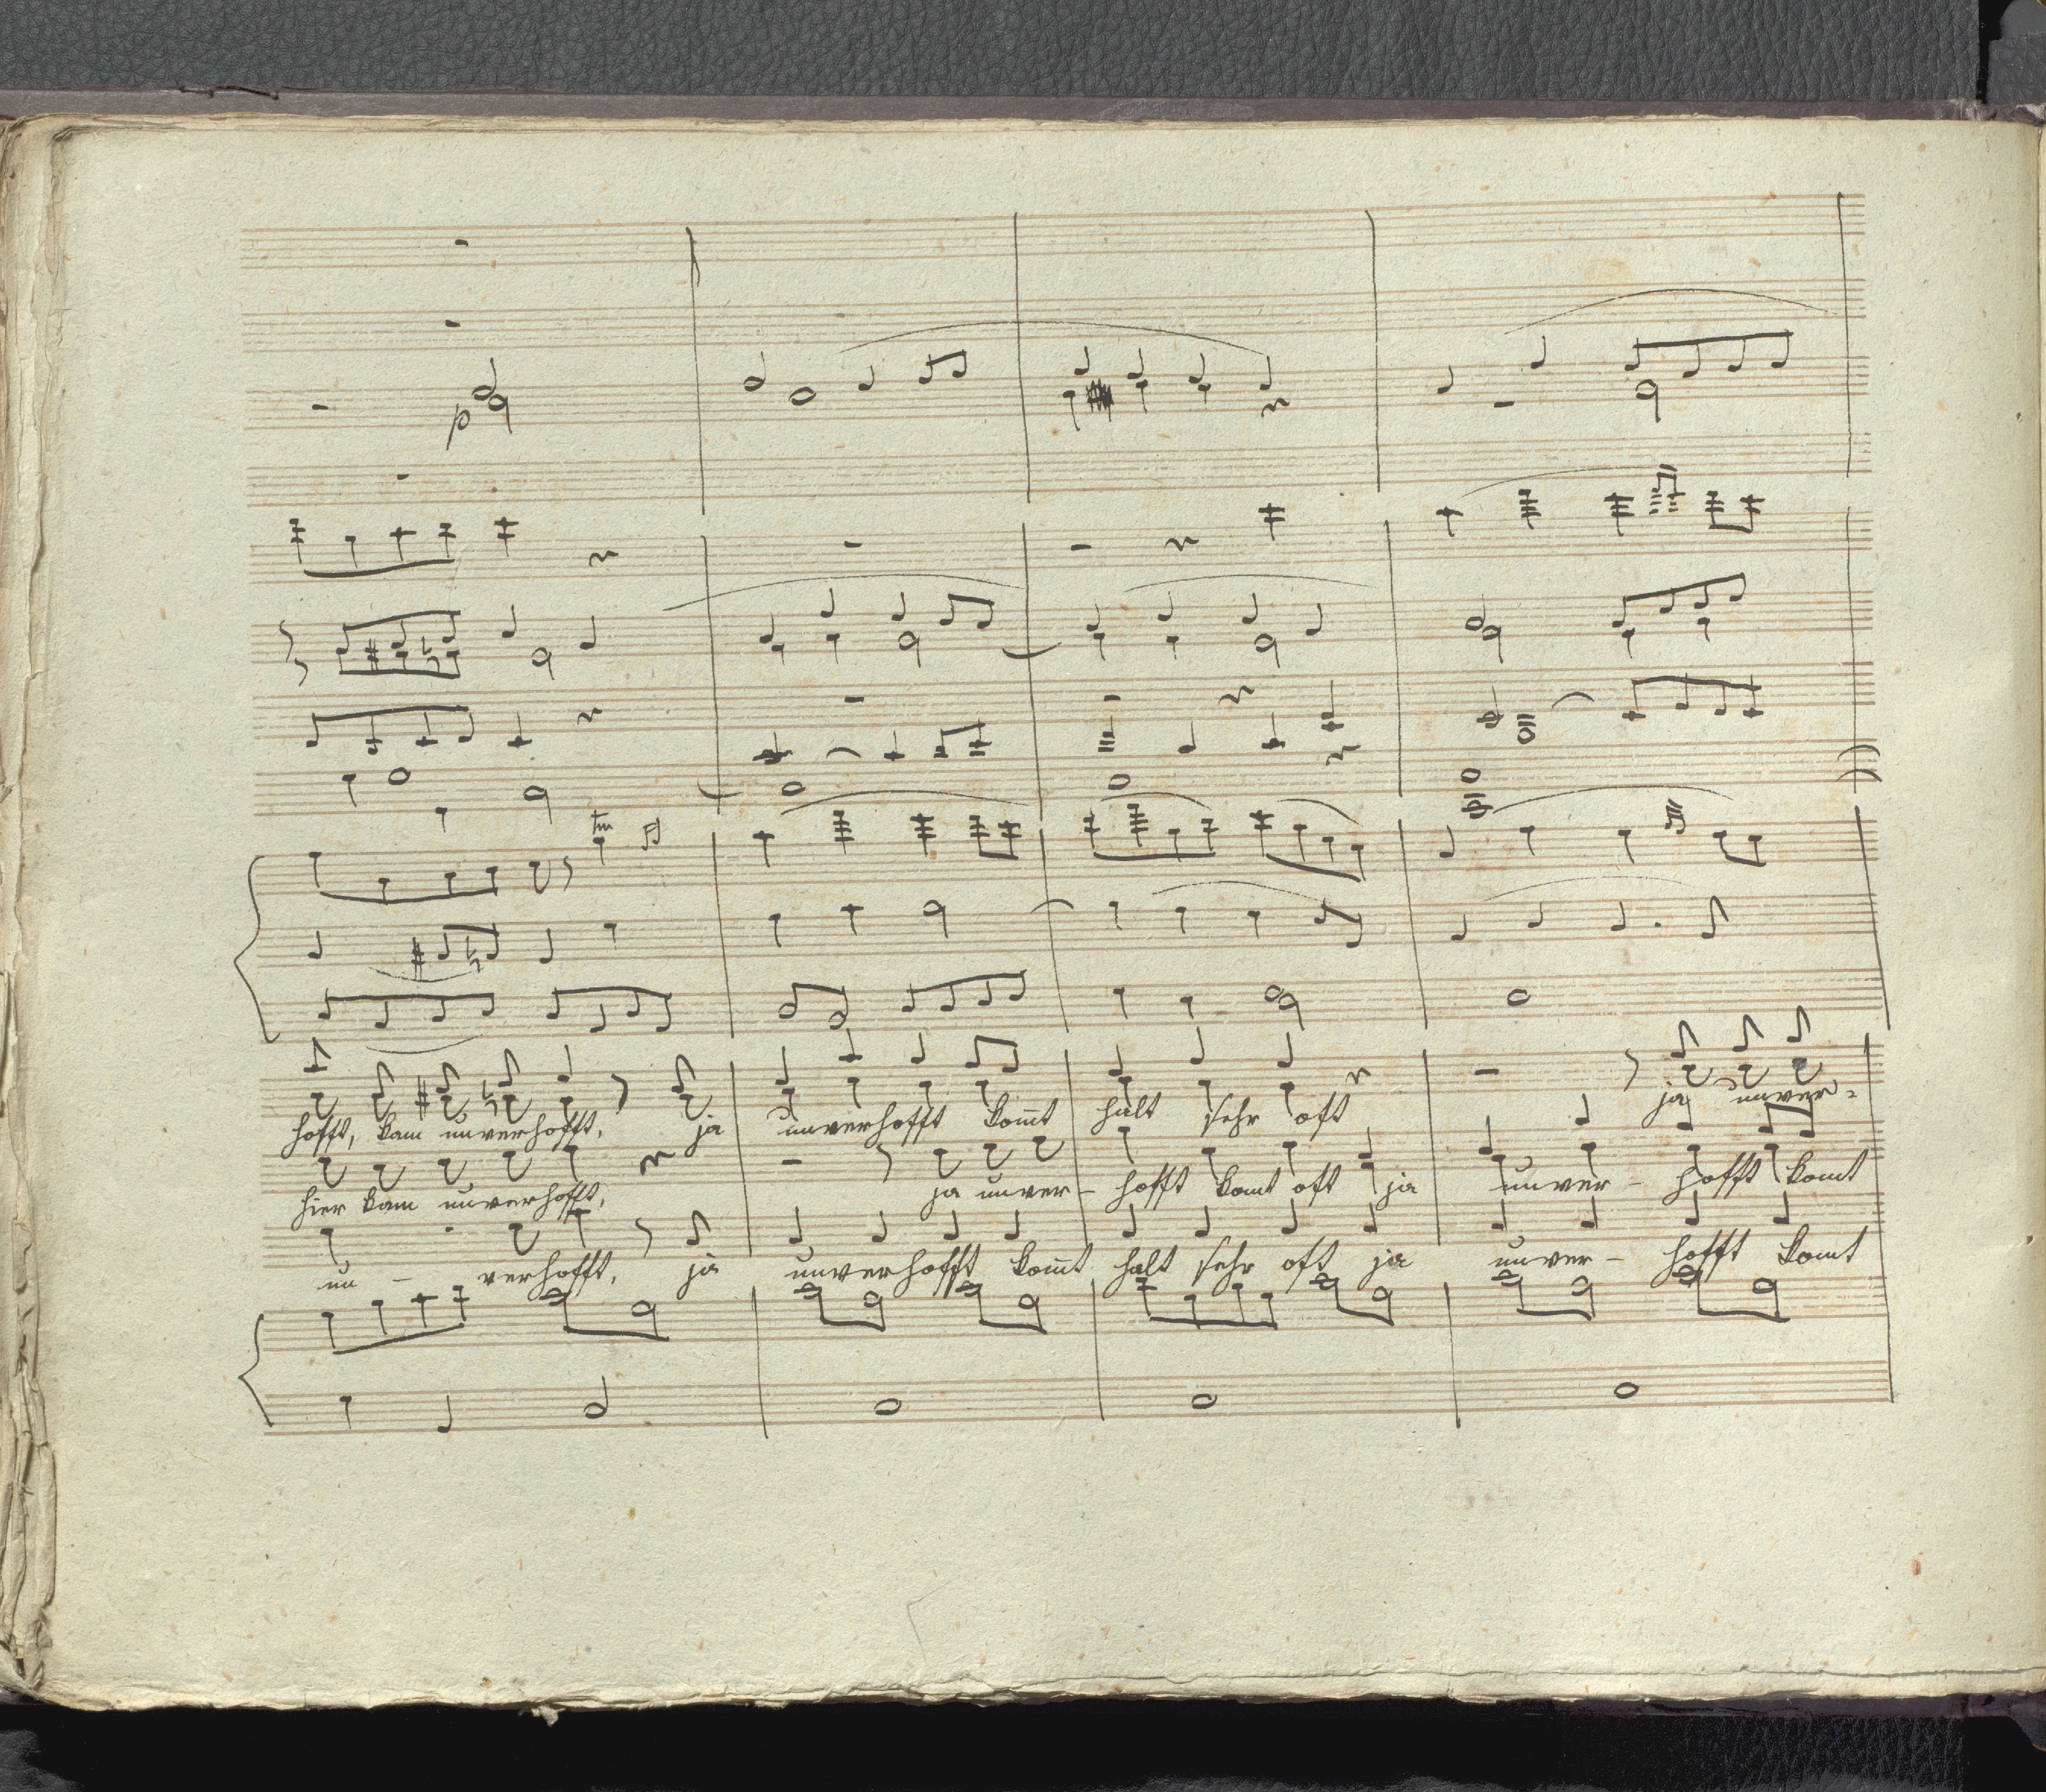 p
tr
hofft, kam unverhofft, ja unverhofft kom̄t halt sehr oft ja unver-
hier kam unverhofft, ja unver- hofft komt oft ja unver- hofft komt
un - verhofft, ja unverhofft kom̄t halt sehr oft ja unver- hofft komt